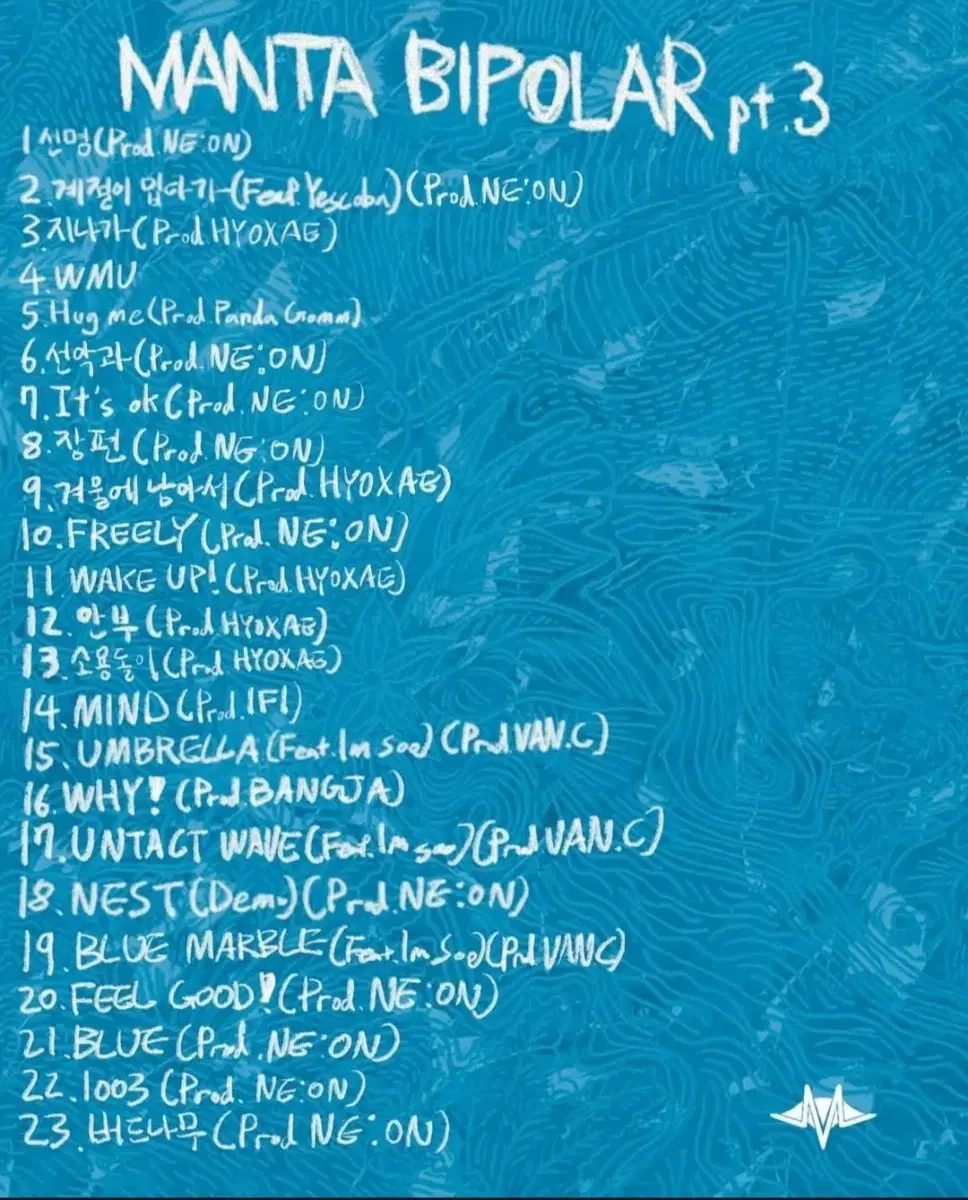 MANTA BIPOLAR pt.3
1 신명(Prod.NE:ON)
2.계절이 밉다가(Feat.Yescoba)(Prod.NE:ON)
3.지나가(Prod HYOXAE)
4.WMU
5.Hug me(Prod.Panda Gomm)
6.선악과(Prod.NE:ON)
7.It's ok(Prod.NE:ON)
8.장편(Prod.NE:ON)
9.겨울에 남아서(Prod.HYOXAE)
10.FREELY(Prod.NE:ON)
11.WAKE UP!(Prod.HYOXAE)
12.안부(Prod.HYOXAE)
13.소용돌이(Prod.HYOXAE)
14.MIND(Prod.IFI)
15.UMBRELLA(Feat.Im Soo)(Prod.VAN.C)
16.WHY!(Prod.BANGJA)
17.UNTACT WAVE(Feat.Im Soo)(Prod.VAN.C)
18.NEST(Demo)(Prod.NE:ON)
19.BLUE MARBLE(Feat.Im Soo)(Prod.VAN.C)
20.FEEL GOOD!(Prod.NE:ON)
21.BLUE(Prod.NE:ON)
22.1003(Prod.NE:ON)
23.버드나무(Prod NE:ON)